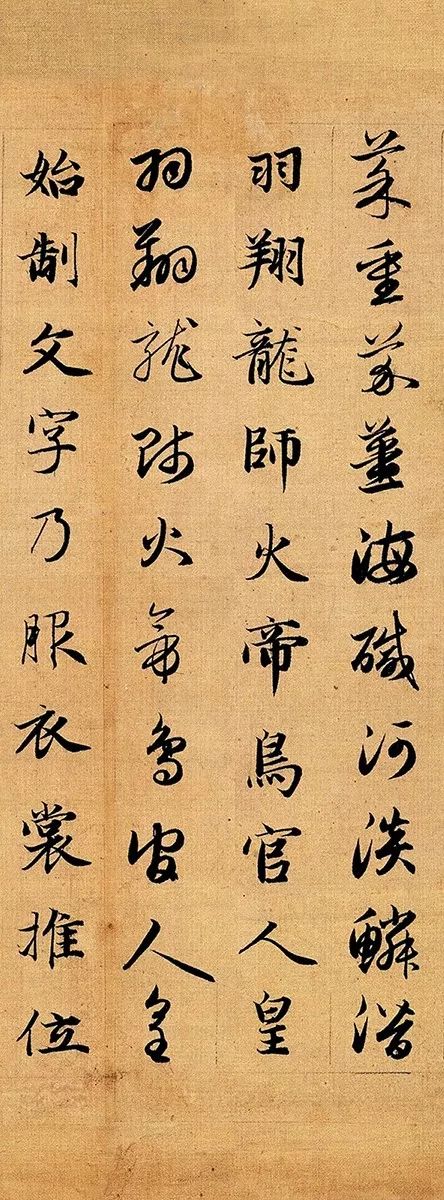 菜重芥薑海碱河淡鱗潛
羽翔龍師火帝鳥官人皇
羽翔龍師火帝鳥官人皇
始制文字乃服衣裳推位